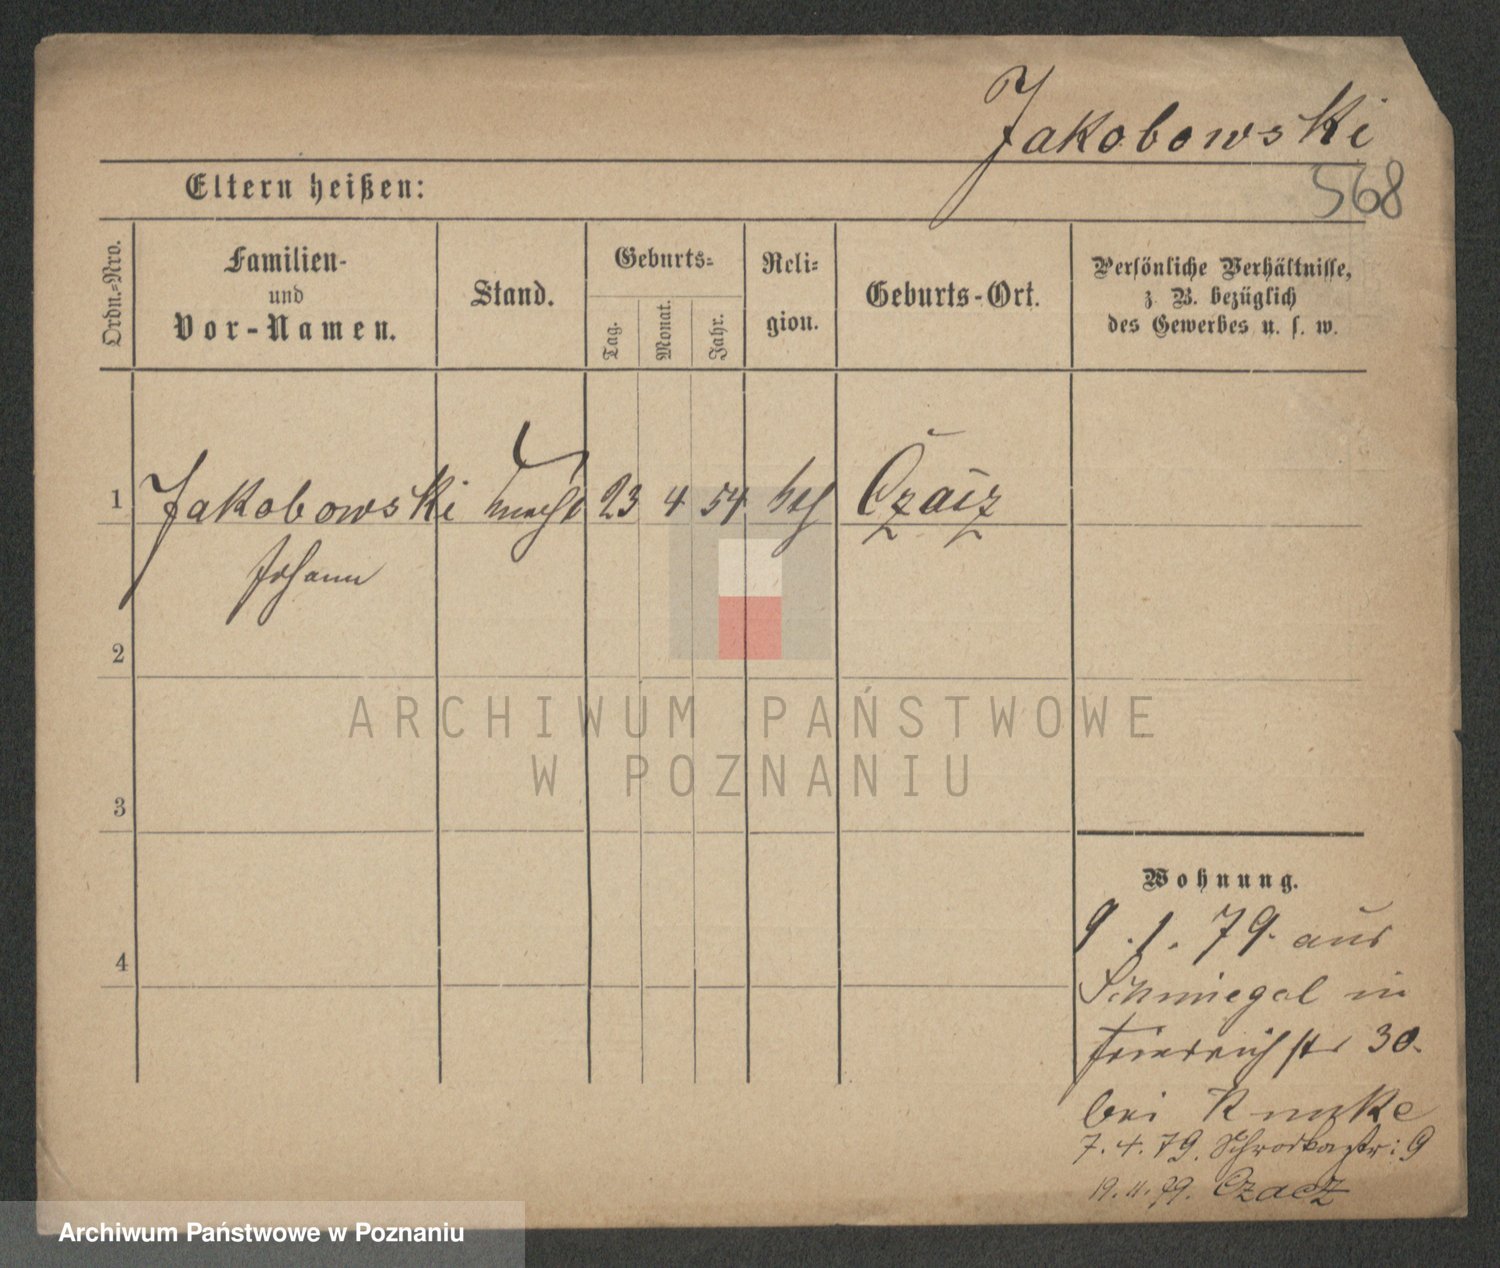 Jakobowski
568
Eltern heißen:
Ordn.-Nro.
Familien-
und
Vor-Namen.
Stand.
Geburts-
Tag.
Monat.
Jahr.
Reli-
gion.
Geburts-Ort.
Persönliche Verhältnisse,
z. B. bezüglich
des Gewerbes u. s. w.
1 Jakobowski 23 4 54 kth Czacz
Johann
2
3
4
Wohnung.
9.1.79. aus
Schmiegel in
Friedrichstr 30.
bei
7.4.79. Schrodkastr: 9
19.11.79. Czacz
ARCHIWUM PAŃSTWOWE
W POZNANIU
Archiwum Państwowe w Poznaniu